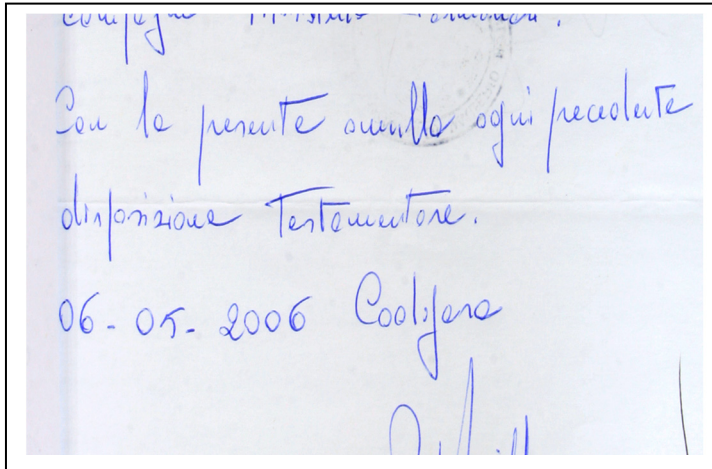 Con la presente annullo ogni precedente
disposizione Testamentare.
06-05-2006 Codifera